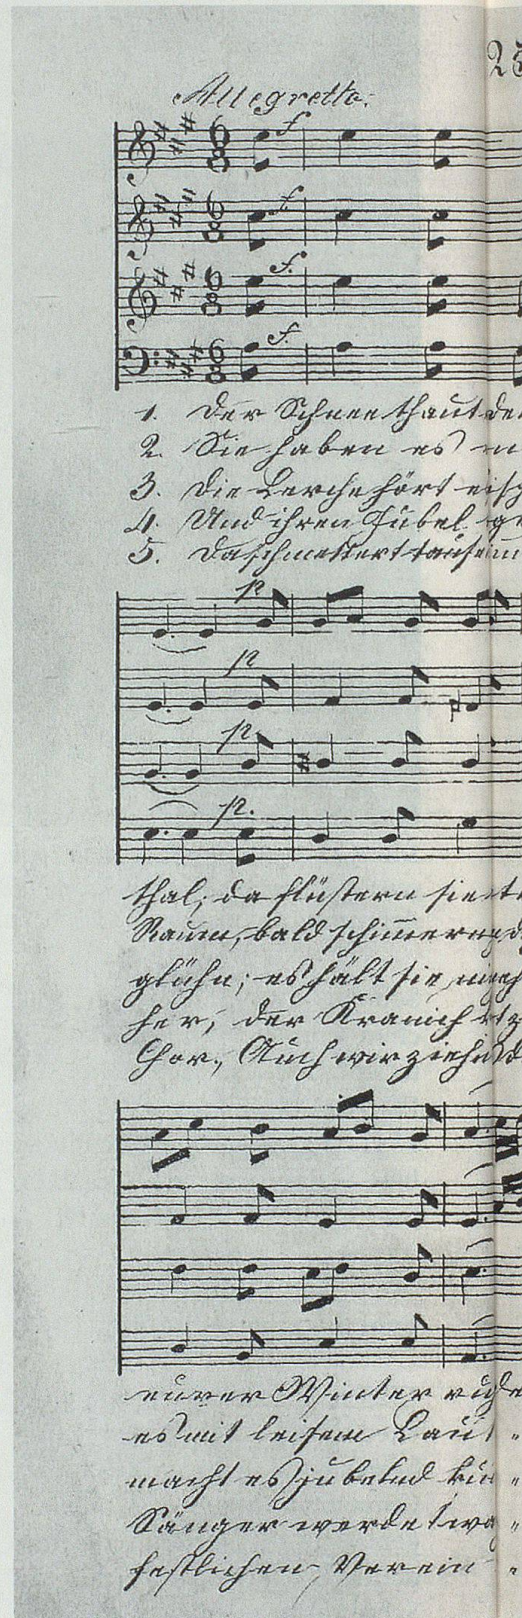 25
Allegretto.
f.
f.
f.
f.
1. Der Schnee thaut de
2. Sie haben es
3. Die Lerche hört
4. Und ihren Jubel
5. Da schmettert
p
p
p
p.
thal, da flüstern sie
Raum, bald schimmern
glühn; es hält sie
her, der Kranich
Chor, Auch wir ziehn
eurer Winter
es mit leisem Laut
macht es jubelnd
Sänger werdet
festlichen Verein